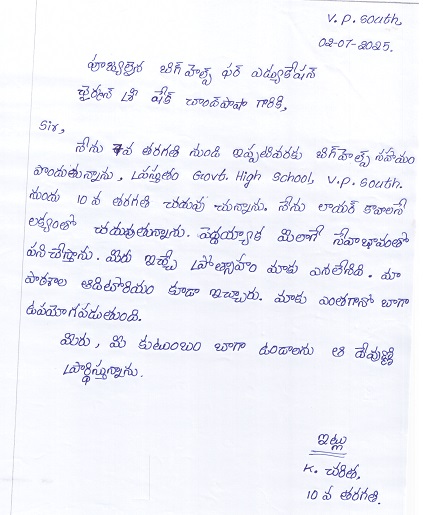 V.P. South,
02-07-2025.
పూజ్యులైన బిగ్ హెల్ప్ ఫర్ ఎడ్యుకేషన్
ఛైర్మన్ శ్రీ షేక్ చాంద్ పాషా గారికి,
Sir,
నేను 7వ తరగతి నుండి ఇప్పటివరకు బిగ్ హెల్ప్ సహాయం
పొందుతున్నాను, ప్రస్తుతం Govt. High School, V.P. South.
నందు 10 వ తరగతి చదువు చున్నాను. నేను లాయర్ కావాలనే
లక్ష్యంతో చదువుతున్నాను. పెద్దయ్యాక మీలాగే సేవాభావంతో
పనిచేస్తాను. మీరు ఇచ్చే ప్రోత్సాహం మాకు ఎనలేనిది. మా
పాఠశాల ఆడిటోరియం కూడా ఇచ్చారు. మాకు ఎంతగానో బాగా
ఉపయోగపడుతుంది.
మీరు, మీ కుటుంబం బాగా ఉండాలను ఆ దేవుణ్ణి
ప్రార్థిస్తున్నాను.
ఇట్లు
K. చరిత.
10 వ తరగతి.